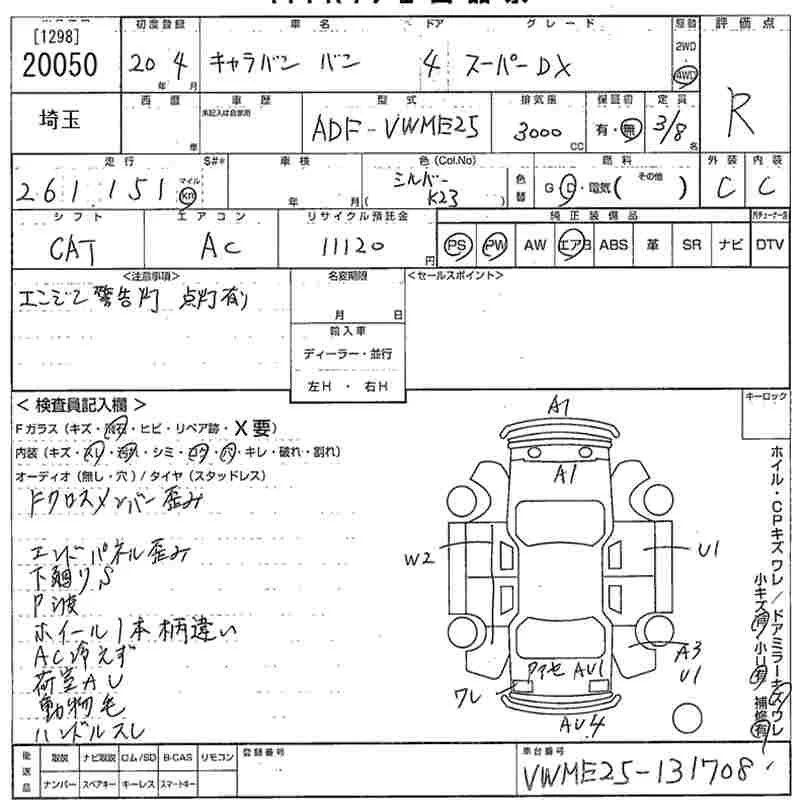 [1298]
20050
初度登録
20年 4月
車名
キャラバン バン
ドア
4
グレード
スーパーDX
駆動
2WD
4WD
評価点
R
埼玉
西暦
年
車歴
未記入は自家用
型式
ADF-VWME25
排気量
3000 CC
保証書
有・無
定員
3/8名
走行
261,151
マイル
km
S#*
車検
年 月
色(Col.No)
シルバー
( K23 )
色替
燃料
G・D・電気( その他 )
外装
C
内装
C
シフト
CAT
エアコン
AC
リサイクル預託金
11120円
純正装備品
PS PW AW エアB ABS 革 SR ナビ
DTV
<注意事項>
エンジン警告灯 点灯有り
名変期限
月 日
輸入車
ディーラー・並行
左H・右H
<セールスポイント>
<検査員記入欄>
Fガラス(キズ・飛石・ヒビ・リペア跡・X要)
内装(キズ・スレ・汚れ・シミ・コゲ・穴・キレ・破れ・割れ)
オーディオ(無し・穴)/タイヤ(スタッドレス)
Fクロスメンバー歪み
エンドパネル歪み
下廻りS
P波
ホイール1本柄違い
AC冷えず
荷室AU
動物毛
ハンドルスレ
キーロック
A1
A1
W2
U1
A3
U1
ワレ
ウアセ AU1
AU4
ホイル・CPキズワレ/ドアミラーキズワレ
小キズ有 小U有 補修有
後返品
取説 ナビ取説 ロム/SD B-CAS リモコン
ナンバー スペアキー キーレス スマートキー
登録番号
車台番号
VWME25-131708